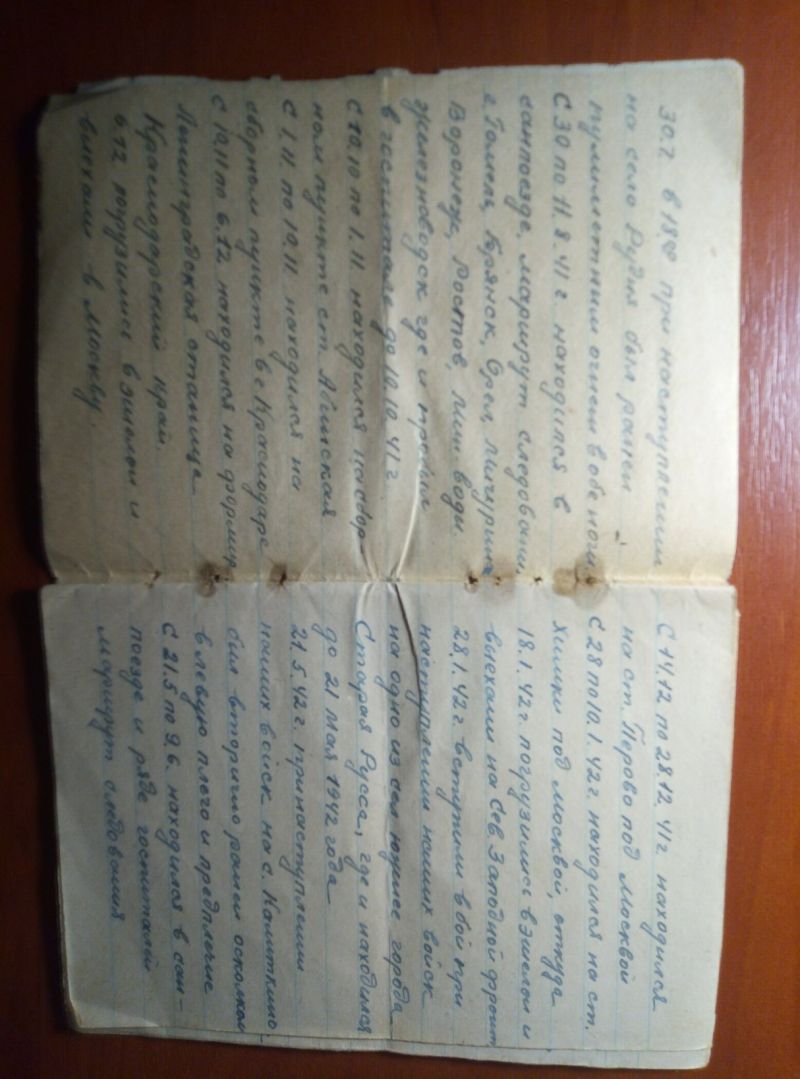 30.7 в 18⁰⁰ при наступлении
на село Рудня был ранен
пулиметным огнем в обе ноги
С 30 по 11.8.41 г находился в
санпоезде, маршрут следования
г. Гомель, Брянск, Орел,
Воронеж, Ростов, Мин. воды
Железноводск где и пробыл
в госпитале до 10.10.41 г
С 10.10 по 1.11 находился на сбор-
ном пункте ст. Абинская
С 1.11 по 10.11 находился на
сборном пункте в г Краснодаре
С 10.11 по 6.12 находился на формир
Ленинградская станица
Краснодарский край.
6.12 погрузились в эшелон и
выехали в Москву.
С 14.12 по 28.12.41 г находился
на ст. Перово под Москвой
С 28 по 10.1.42 г находился на ст.
Химки под Москвой, откуда
18.1.42 г. погрузились в эшелон и
выехали на Сев. Западной фронт
28.1.42 г вступили в бой при
наступлении наших войск
на одно из сел южнее города
Старая Русса, где и находился
до 21 Мая 1942 года
21.5.42 г. при наступлении
наших войск на с.
был вторично ранен осколком
в левую плечо и предплечие
С 21.5 по 9.6 находился в сан-
поезде и ряде госпиталей
маршрут следования